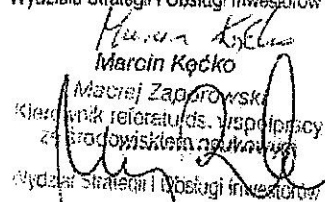 Wydziału Strategii i Obsługi Inwestorów
Marcin Kęćko
Maciej Zaporowski
Kierownik referatu ds. współpracy
ze środowiskiem naukowym
Wydział Strategii i Obsługi Inwestorów